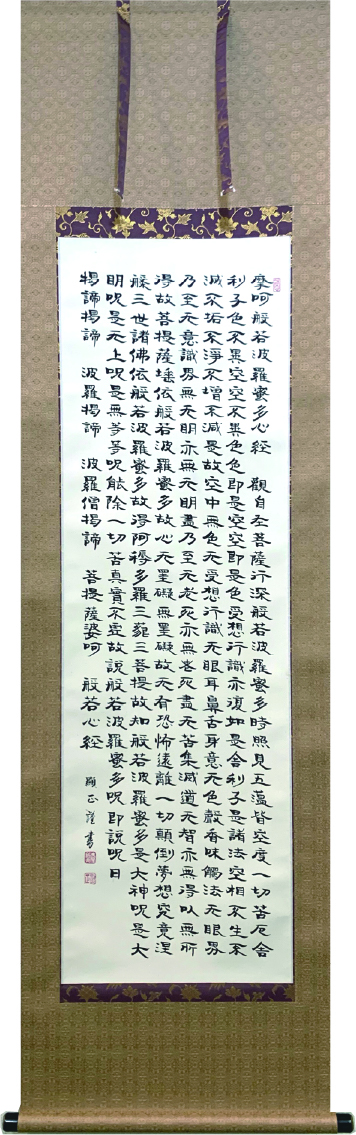 摩呵般若波羅蜜多心經　觀自在菩薩行深般若波羅蜜多時照見五蘊皆空度一切苦厄舍
利子色不異空空不異色色即是空空即是色受想行識亦復如是舍利子是諸法空相不生不
滅不垢不淨不增不減是故空中無色无受想行識无眼耳鼻舌身意无色聲香味觸法无眼界
乃至无意識界無无明亦無无明盡乃至无老死亦無老死盡无苦集滅道无智亦無得以無所
得故菩提薩埵依般若波羅蜜多故心无罣礙無罣礙故无有恐怖遠離一切顛倒夢想究竟涅
槃三世諸佛依般若波羅蜜多故得阿耨多羅三藐三菩提故知般若波羅蜜多是大神呪是大
明呪是无上呪是無等等呪能除一切苦真實不虛故說般若波羅蜜多呪即說呪曰
揭諦揭諦　波羅揭諦　波羅僧揭諦　菩提薩婆呵　般若心經